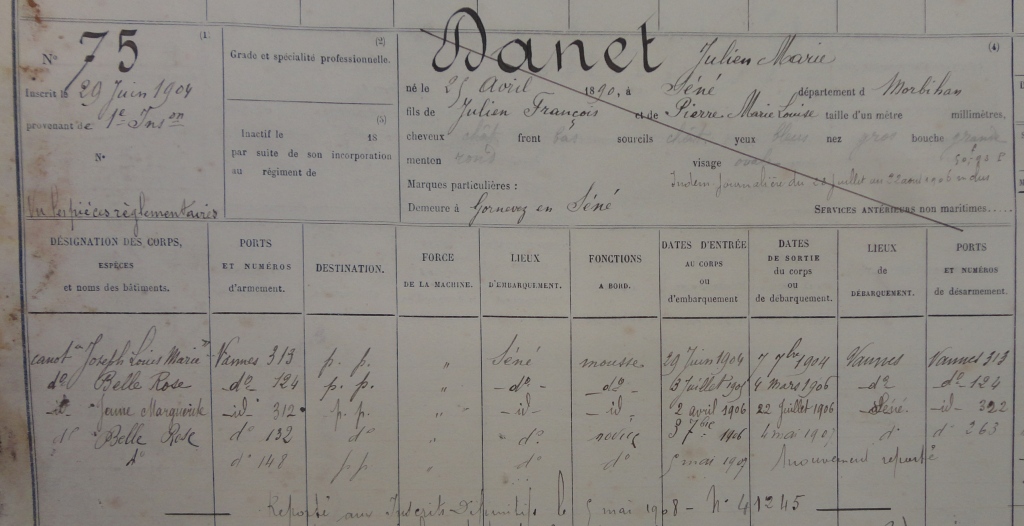 N° 75 (1)
Inscrit le 29 Juin 1904
provenant de 1e Insen
N°
Vu les pièces réglementaires
(2)
Grade et spécialité professionnelle.
(3)
Inactif le 18
par suite de son incorporation
au régiment de
Danet Julien Marie (4)
né le 25 Avril 1890, à Séné département d Morbihan
fils de Julien François et de Pierre Marie Louise taille d'un mètre millimètres,
cheveux chât front bas sourcils chât yeux bleus nez gros bouche grande
menton rond visage ovale
Indem. journalière du juillet au 22 août 1906
Marques particulières :
Demeure à Gornevez en Séné SERVICES ANTÉRIEURS non maritimes.....
DÉSIGNATION DES CORPS, ESPÈCES et noms des bâtiments. PORTS ET NUMÉROS d'armement. DESTINATION. FORCE DE LA MACHINE. LIEUX D'EMBARQUEMENT. FONCTIONS A BORD. DATES D'ENTRÉE AU CORPS OU d'embarquement DATES DE SORTIE du corps ou de débarquement. LIEUX de DÉBARQUEMENT. PORTS ET NUMÉROS de désarmement.
canot "Joseph Louis Marie" Vannes 313 p. p. " Séné mousse 29 Juin 1904 7 7bre 1904 Vannes Vannes 313
d° Belle Rose d° 124 p. p. " d° d° 3 Juillet 1905 4 mars 1906 d° d° 124
id Jeune Marguerite id 312 p. p. " id id 2 avril 1906 22 Juillet 1906 Séné id 322
d° Belle Rose d° 132 d° " d° novice 3 7bre 1906 4 mai 1907 d° d° 263
d° d° 148 p p " d° d° 5 mai 1907 Mouvement reporté
Reporté aux Inscrits Définitifs le 5 mai 1908 - N° 41245